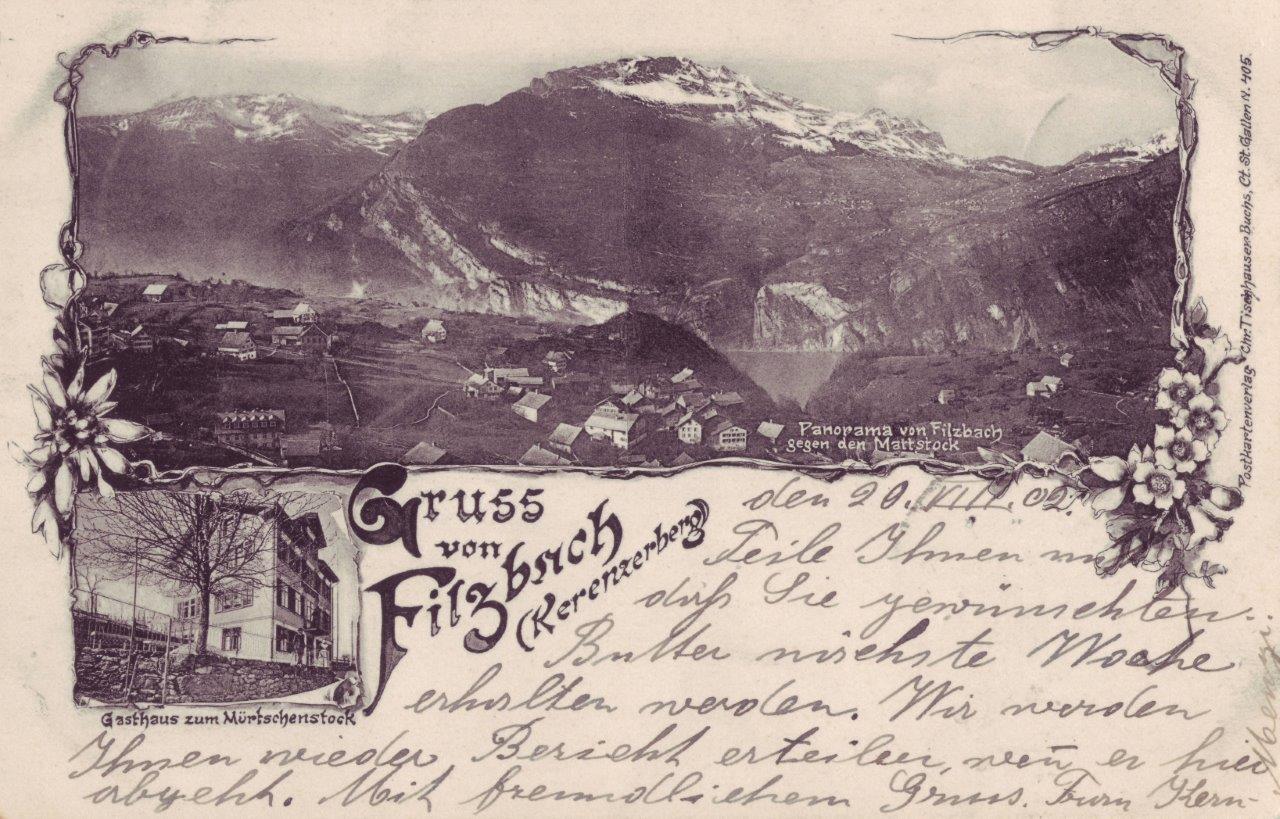 Panorama von Filzbach
gegen den Mattstock
Postkartenverlag Chr. Tischhauser Buchs, Ct. St. Gallen N. 405.
Gruss
von
Filzbach
(Kerenzerberg)
Gasthaus zum Mürtschenstock
den 20. VIII. 02.
Teile Ihnen
daß Sie gewünschten
Butter nächste Woche
erhalten werden. Wir werden
Ihnen wieder Bericht erteilen, wen̄ er hier
abgeht. Mit freundlichem Gruss.